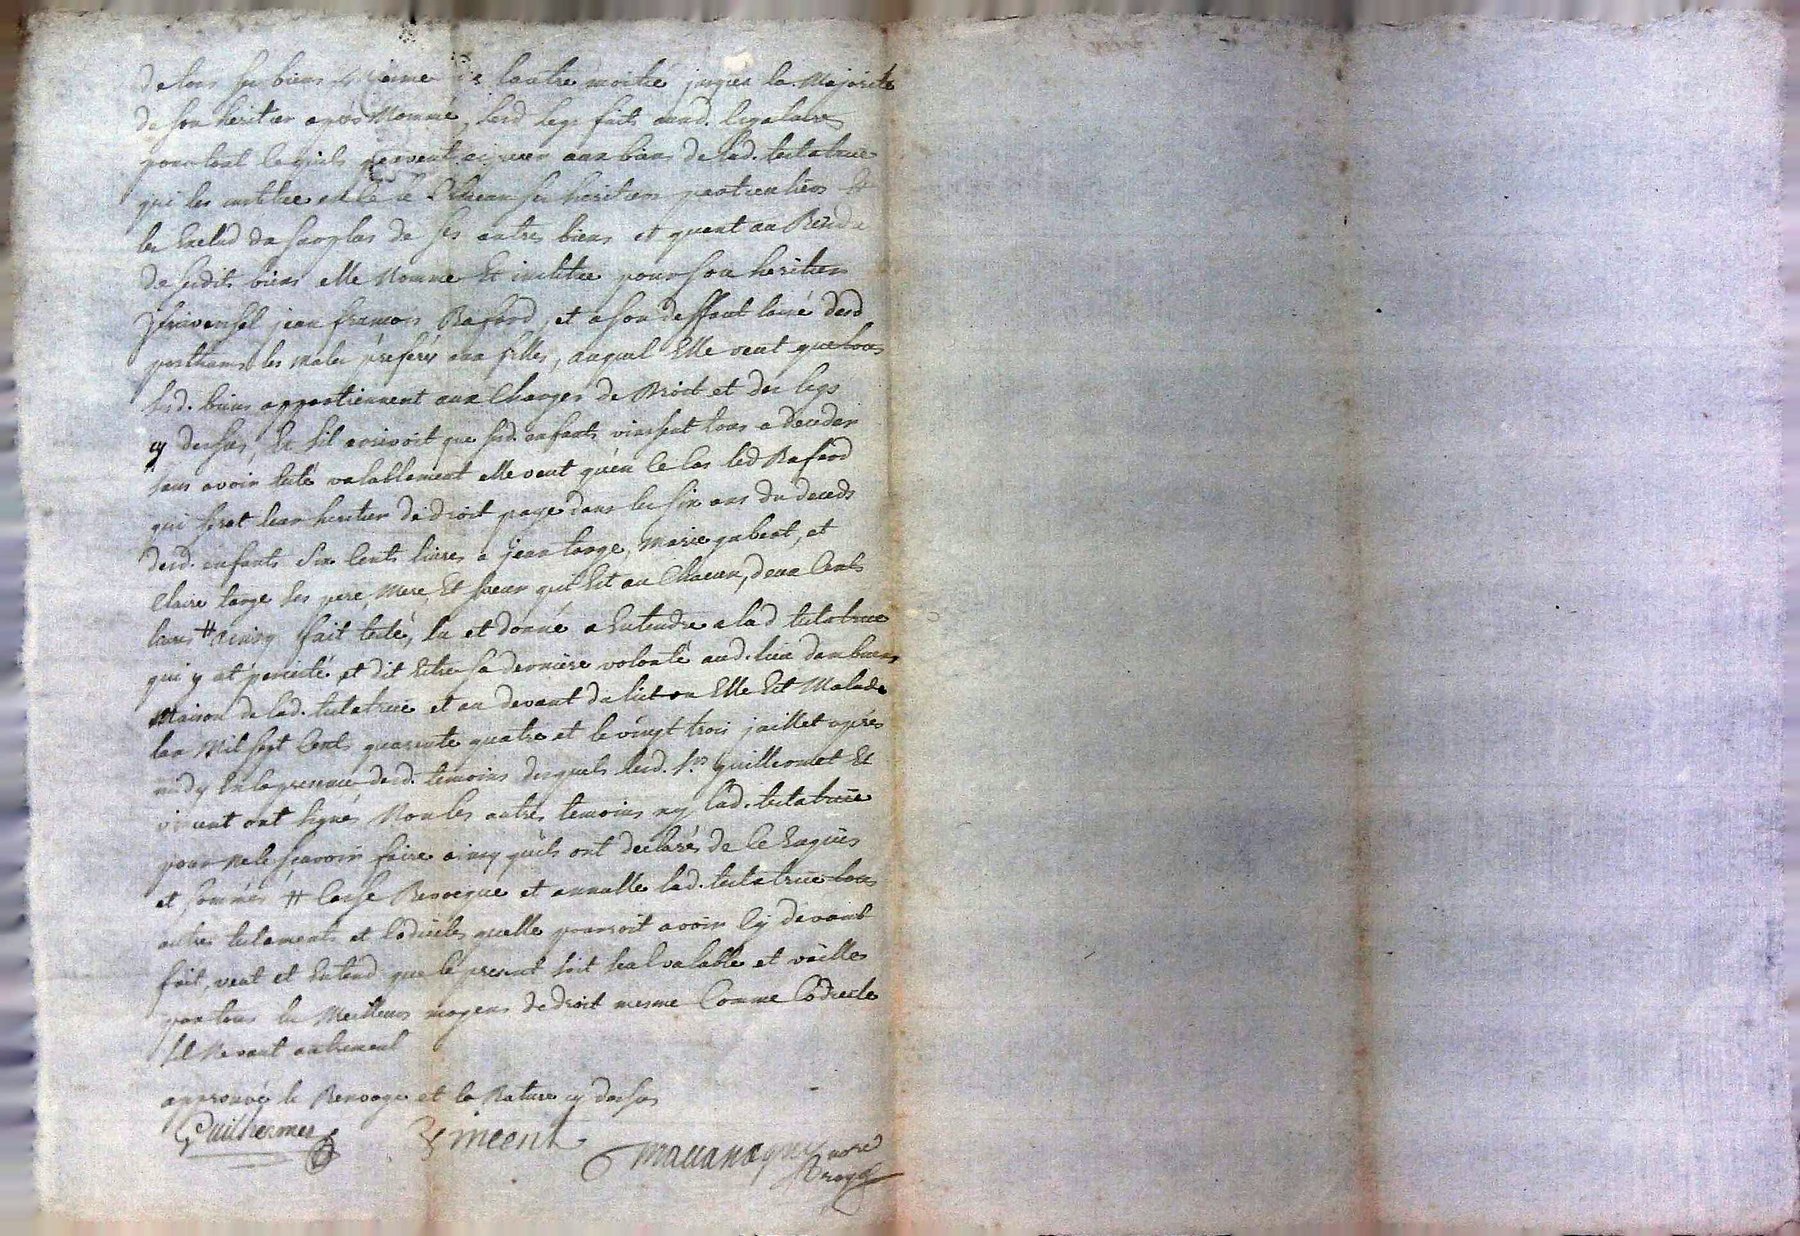 de tous ses biens de lautre moitié jusques la Majorité
de son heritier apres Nommé, lesd legs faits auxd. legataires
pour tout ce quils peuvent aux biens de lad. testatrice
qui les institue en ce chacun ses heritiers particuliers et
les Exclud du surplus de ses autres biens et quant au Residu
de sesdits biens elle Nomme Et institue pour son heritier
Universel jean francois Rafard, et a son deffaut lainé desd
posthumes les males préferés aux filles, auquel Elle veut que tous
sesd. biens appartiennent aux Charges de Droit et des legs
cy dessus, Et sil arrivoit que sesd. enfants vinssent tous a deceder
sans avoir testé valablement elle veut quen ce Cas led Rafard
qui serat leur heritier de droit paye dans les six ans du deceds
desd. enfants Six Cents livres a jean targe, Marie gubert, et
Claire targe ses pere, Mere, Et soeur qui Est au Chacun, deux Cents
livres # ainsy fait testé, lu et donné a Entendre a lad testatrice
qui y at percisté et dit Estre sa derniere volonté aud. lieu
Maison de lad. testatrice et au devant du lict ou Elle Est Malade
lan Mil sept Cents quarente quatre et le vingt trois juillet après
midy En la presence desd. temoins desquels lesd. Srs Guillermet Et
vincent ont signés Non les autres temoins ny lad. testatrice
pour Ne le sçavoir faire ainsy quils ont declarés de ce Enquis
et sommés # Casse Revocque et annulle lad. testatrice tous
autres testaments et Codiciles quelle pourroit avoir Cy devant
fait, veut et Entend que le present soit seal valable et vaille
par tous les Meilleurs moyens de droit mesme Comme Codicile
sil Ne vaut autrement
approuvé le Renvoye et la Rature cy dessus
Guilhermet Vincent nore
Royal